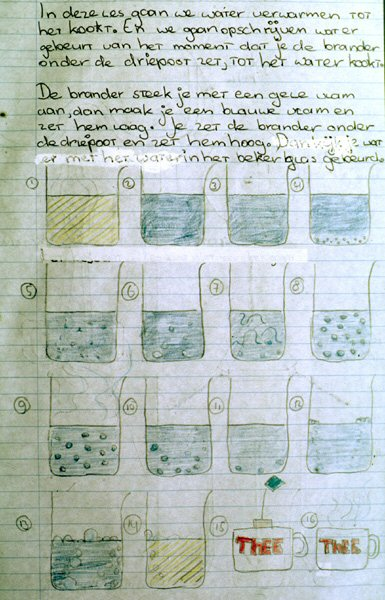 In deze les gaan we water verwarmen tot
het kookt. En we gaan opschrijven water
gebeurt van het moment dat je de brander
onder de driepoot zet, tot het water kookt.
De brander steek je met een gele vlam
aan, dan maak je een blauwe vlam en
zet hem laag. Je zet de brander onder
de driepoot en zet hem hoog. Dan kijk je wat
er met het water in het bekerglas gebeurde
1 2 3 4
5 6 7 8
9 10 11 12
13 14 15 16
THEE THEE